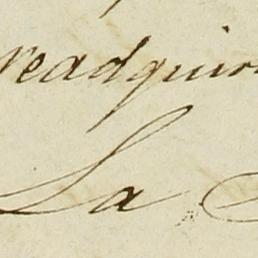 readquir
La